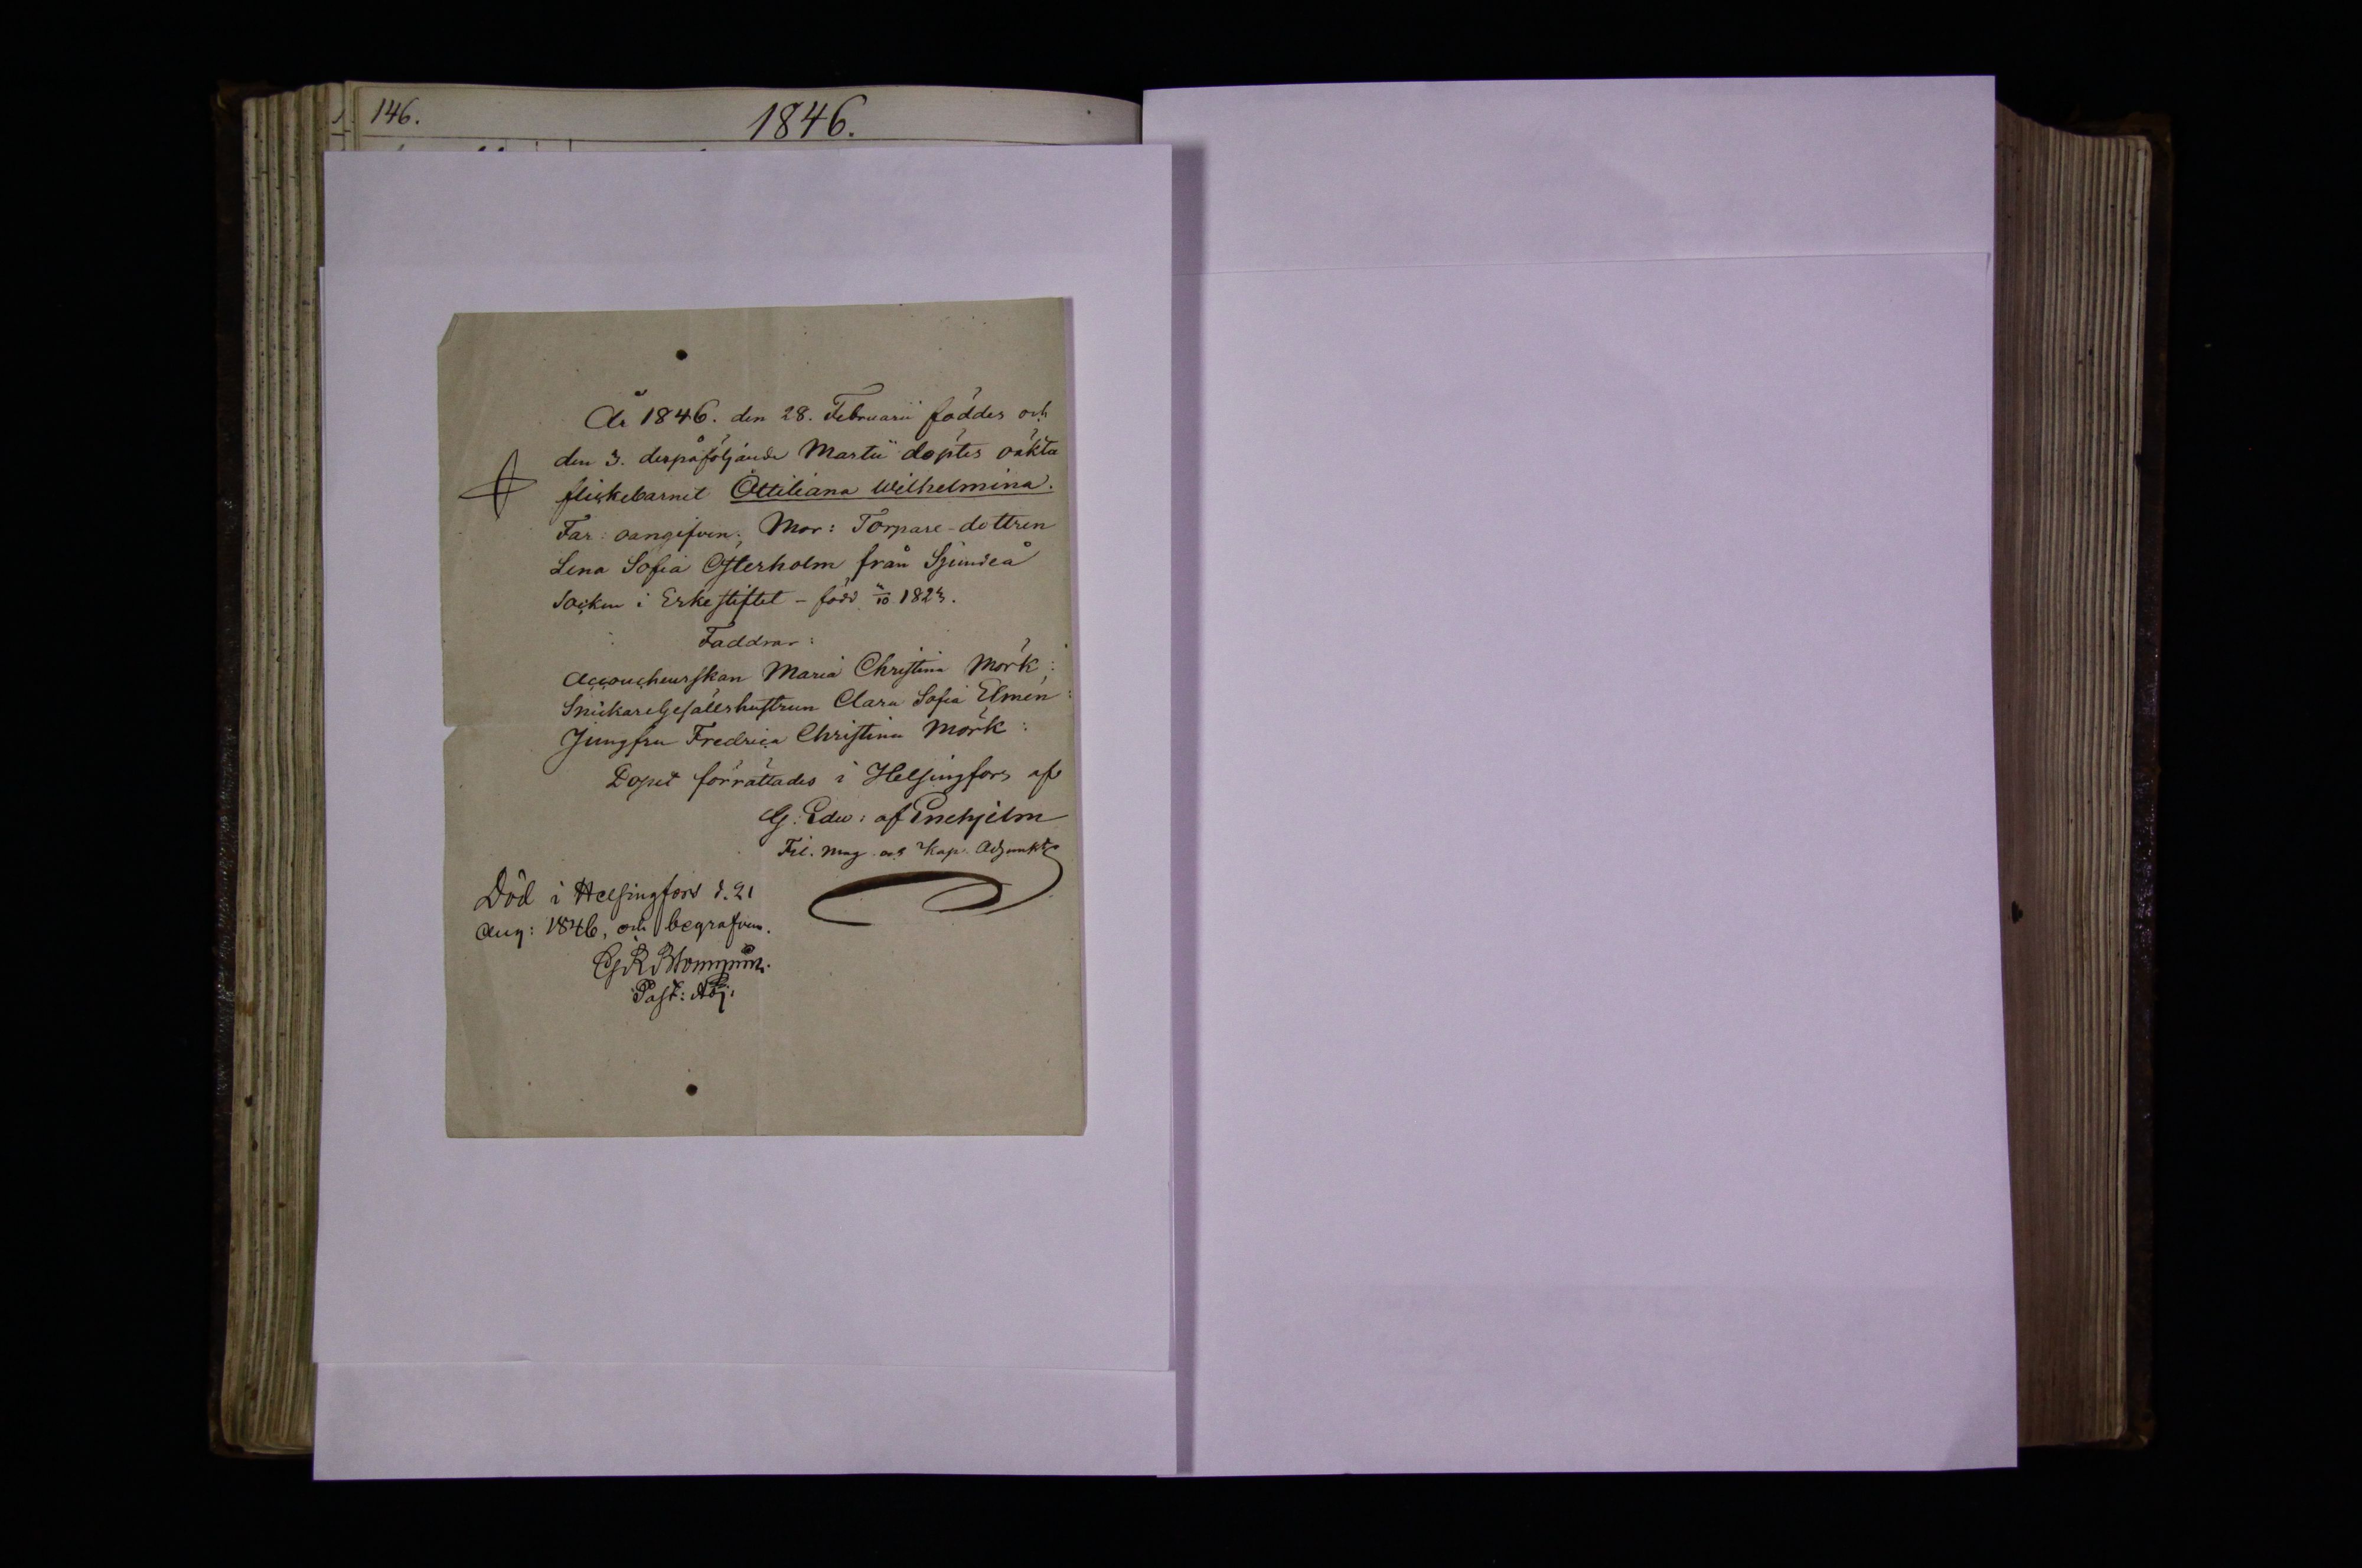 146.
1846.
År 1846. den 28. Februarii föddes och
den 3. derpåföljande Martii döptes oäkta
flickebarnet Ottiliana Wilhelmina.
Far: oangifven; Mor: Torpare-dottren
Lena Sofia Österholm från Sjundeå
Socken i Erkestiftet - född 1823.
Faddrar:
Accoucheurskan Maria Christina Mörk;
Snickaregesällshustrun Clara Sofia Elmén:
Jungfru Fredrica Christina Mörk:
Dopet förrättades i Helsingfors af
G. Edw: af Enehjelm
Fil. Mag. och Kap. Adjunkt
Död i Helsingfors d. 21
Aug: 1846, och begrafven.
Past: Adj.